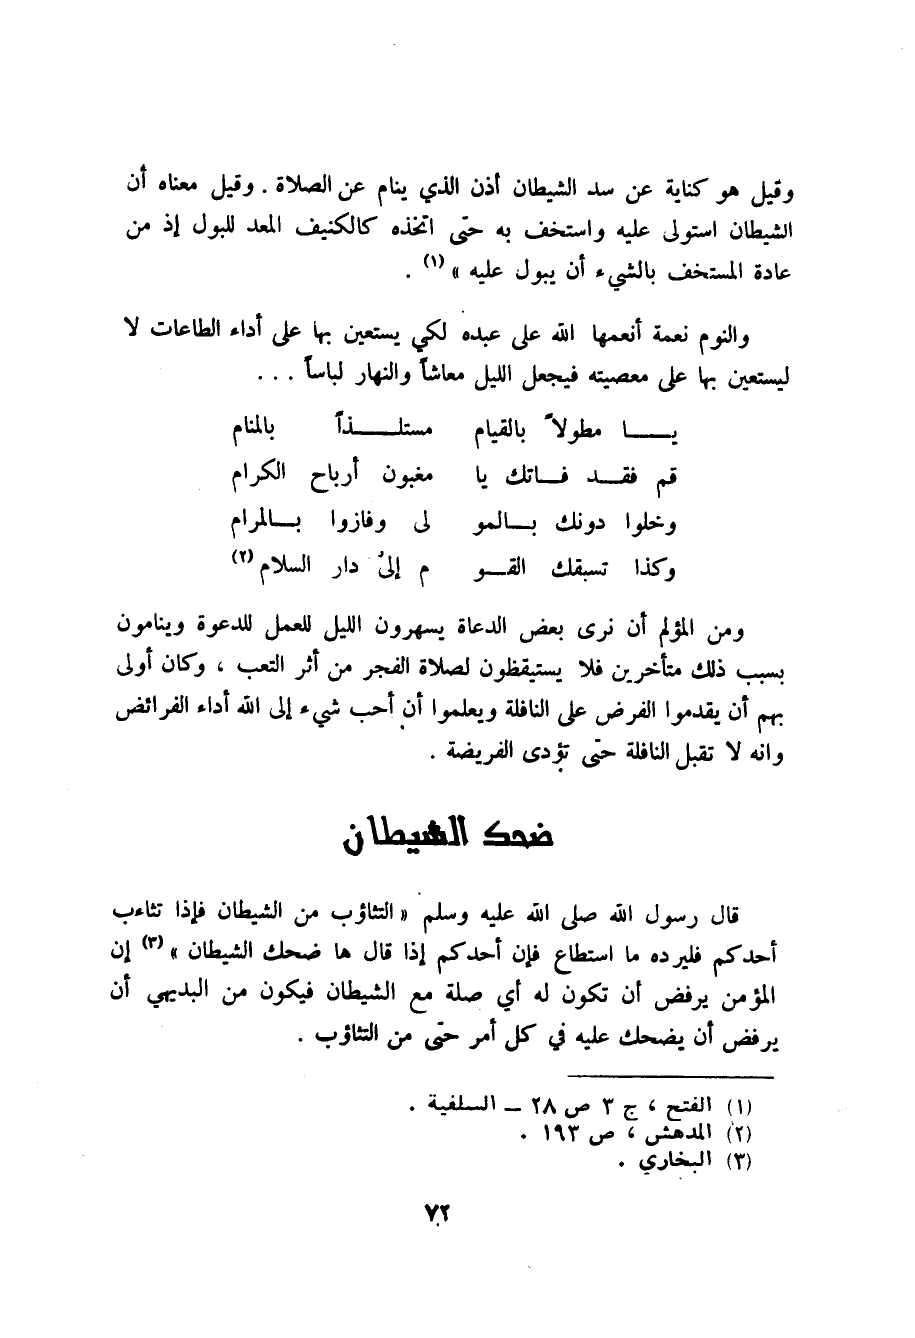 وقيل هو كناية عن سد الشيطان أذن الذي ينام عن الصلاة . وقيل معناه أن
الشيطان استولى عليه واستخف به حتّى اتخذه كالكنيف المعد للبول إذ من
عادة المستخف بالشيء أن يبول عليه » (١) .
والنوم نعمة أنعمها الله على عبده لكي يستعين بها على أداء الطاعات لا
ليستعين بها على معصيته فيجعل الليل معاشاً والنهار لباساً . . .
يــا مطولاً بالقيام مستلــذاً بالمنام
قم فقــد فــاتك يا مغبون أرباح الكرام
وخلوا دونك بــالمو لى وفازوا بــالمرام
وكذا تسبقك القــو م إلى دار السلام (٢)
ومن المؤلم أن نرى بعض الدعاة يسهرون الليل للعمل للدعوة وينامون
بسبب ذلك متأخرين فلا يستيقظون لصلاة الفجر من أثر التعب ، وكان أولى
بهم أن يقدموا الفرض على النافلة ويعلموا أن أحب شيء إلى الله أداء الفرائض
وانه لا تقبل النافلة حتّى تؤدى الفريضة .
ضحك الشيطان
قال رسول الله صلى الله عليه وسلم « التثاؤب من الشيطان فإذا تثاءب
أحدكم فليرده ما استطاع فإن أحدكم إذا قال ها ضحك الشيطان » (٣) إن
المؤمن يرفض أن تكون له أي صلة مع الشيطان فيكون من البديهي أن
يرفض أن يضحك عليه في كل أمر حتّى من التثاؤب .
(١) الفتح ، ج ٣ ص ٢٨ ــ السلفية .
(٢) المدهش ، ص ١٩٣ .
(٣) البخاري .
٧٢